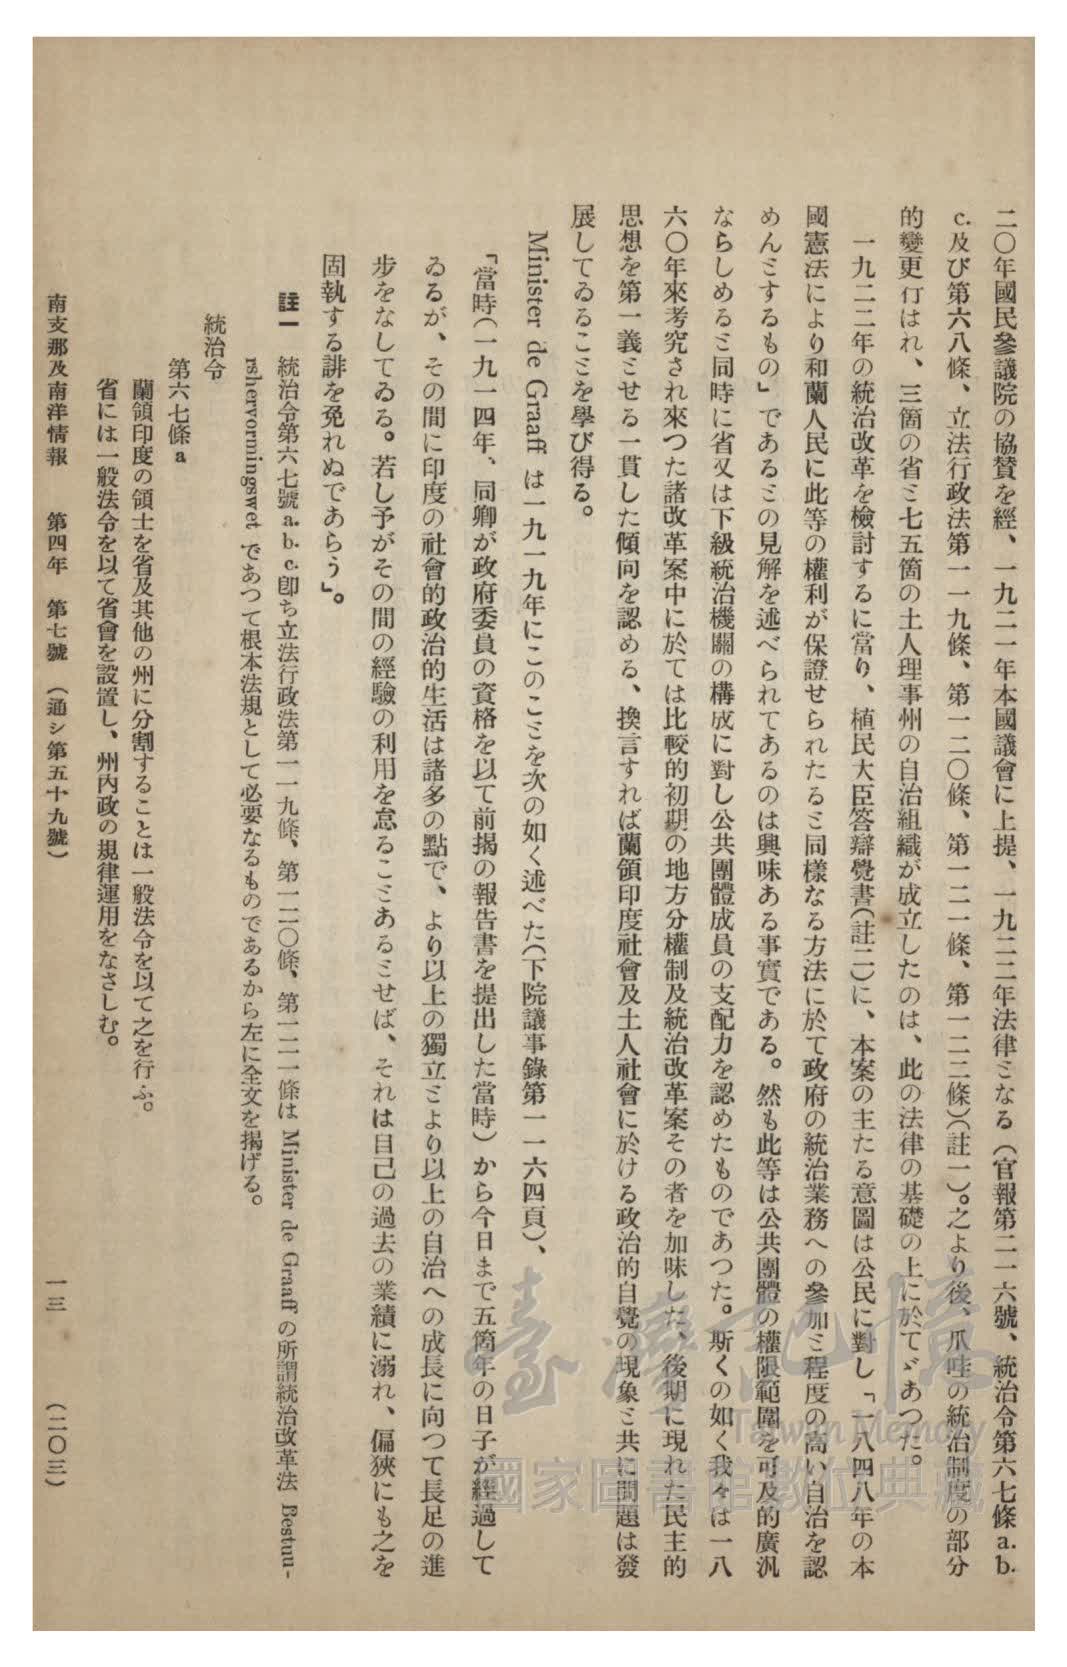 二〇年國民參議院の協贊を經、一九二一年本國議會に上提、一九二二年法律ミなる（官報第二一六號、統治令第六七條 a. b.
c. 及び第六八條、立法行政法第一一九條、第一二〇條、第一二一條、第一二三條）（註一）。之より後、爪哇の統治制度の部分
的變更行はれ、三箇の省ミ七五箇の土人理事州の自治組織が成立したのは、此の法律の基礎の上に於てゞあつた。
一九二二年の統治改革を檢討するに當り、植民大臣答辯覺書（註二）に、本案の主たる意圖は公民に對し「一八四八年の本
國憲法により和蘭人民に此等の權利が保證せられたるミ同樣なる方法に於て政府の統治業務への參加ミ程度の高い自治を認
めんミするもの」であるミの見解を述べられてあるのは興味ある事實である。然も此等は公共團體の權限範圍を可及的廣汎
ならしめるミ同時に省又は下級統治機關の構成に對し公共團體成員の支配力を認めたものであつた。斯くの如く我々は一八
六〇年來考究され來つた諸改革案中に於ては比較的初期の地方分權制及統治改革案その者を加味した、後期に現れた民主的
思想を第一義ミせる一貫した傾向を認める、換言すれば蘭領印度社會及土人社會に於ける政治的自覺の現象ミ共に問題は發
展してゐるこミを學び得る。
Minister de Graaff は一九一九年にこのこミを次の如く述べた（下院議事錄第一一六四頁）、
「當時（一九一四年、同卿が政府委員の資格を以て前揭の報告書を提出した當時）から今日まで五箇年の日子が經過して
ゐるが、その間に印度の社會的政治的生活は諸多の點で、より以上の獨立ミより以上の自治への成長に向つて長足の進
步をなしてゐる。若し予がその間の經驗の利用を怠るこミあるミせば、それは自己の過去の業績に溺れ、偏狹にも之を
固執する誹を免れぬであらう」。
註一　統治令第六七號 a. b. c. 卽ち立法行政法第一一九條、第一二〇條、第一二一條は Minister de Graaff の所謂統治改革法 Bestuu-
rshervormingswet であつて根本法規として必要なるものであるから左に全文を揭げる。
統治令
第六七條 a
蘭領印度の領土を省及其他の州に分割することは一般法令を以て之を行ふ。
省には一般法令を以て省會を設置し、州內政の規律運用をなさしむ。
南支那及南洋情報　第四年　第七號　（通シ第五十九號）　一三　（二〇三）
臺灣記憶
Taiwan Memory
國家圖書館數位典藏